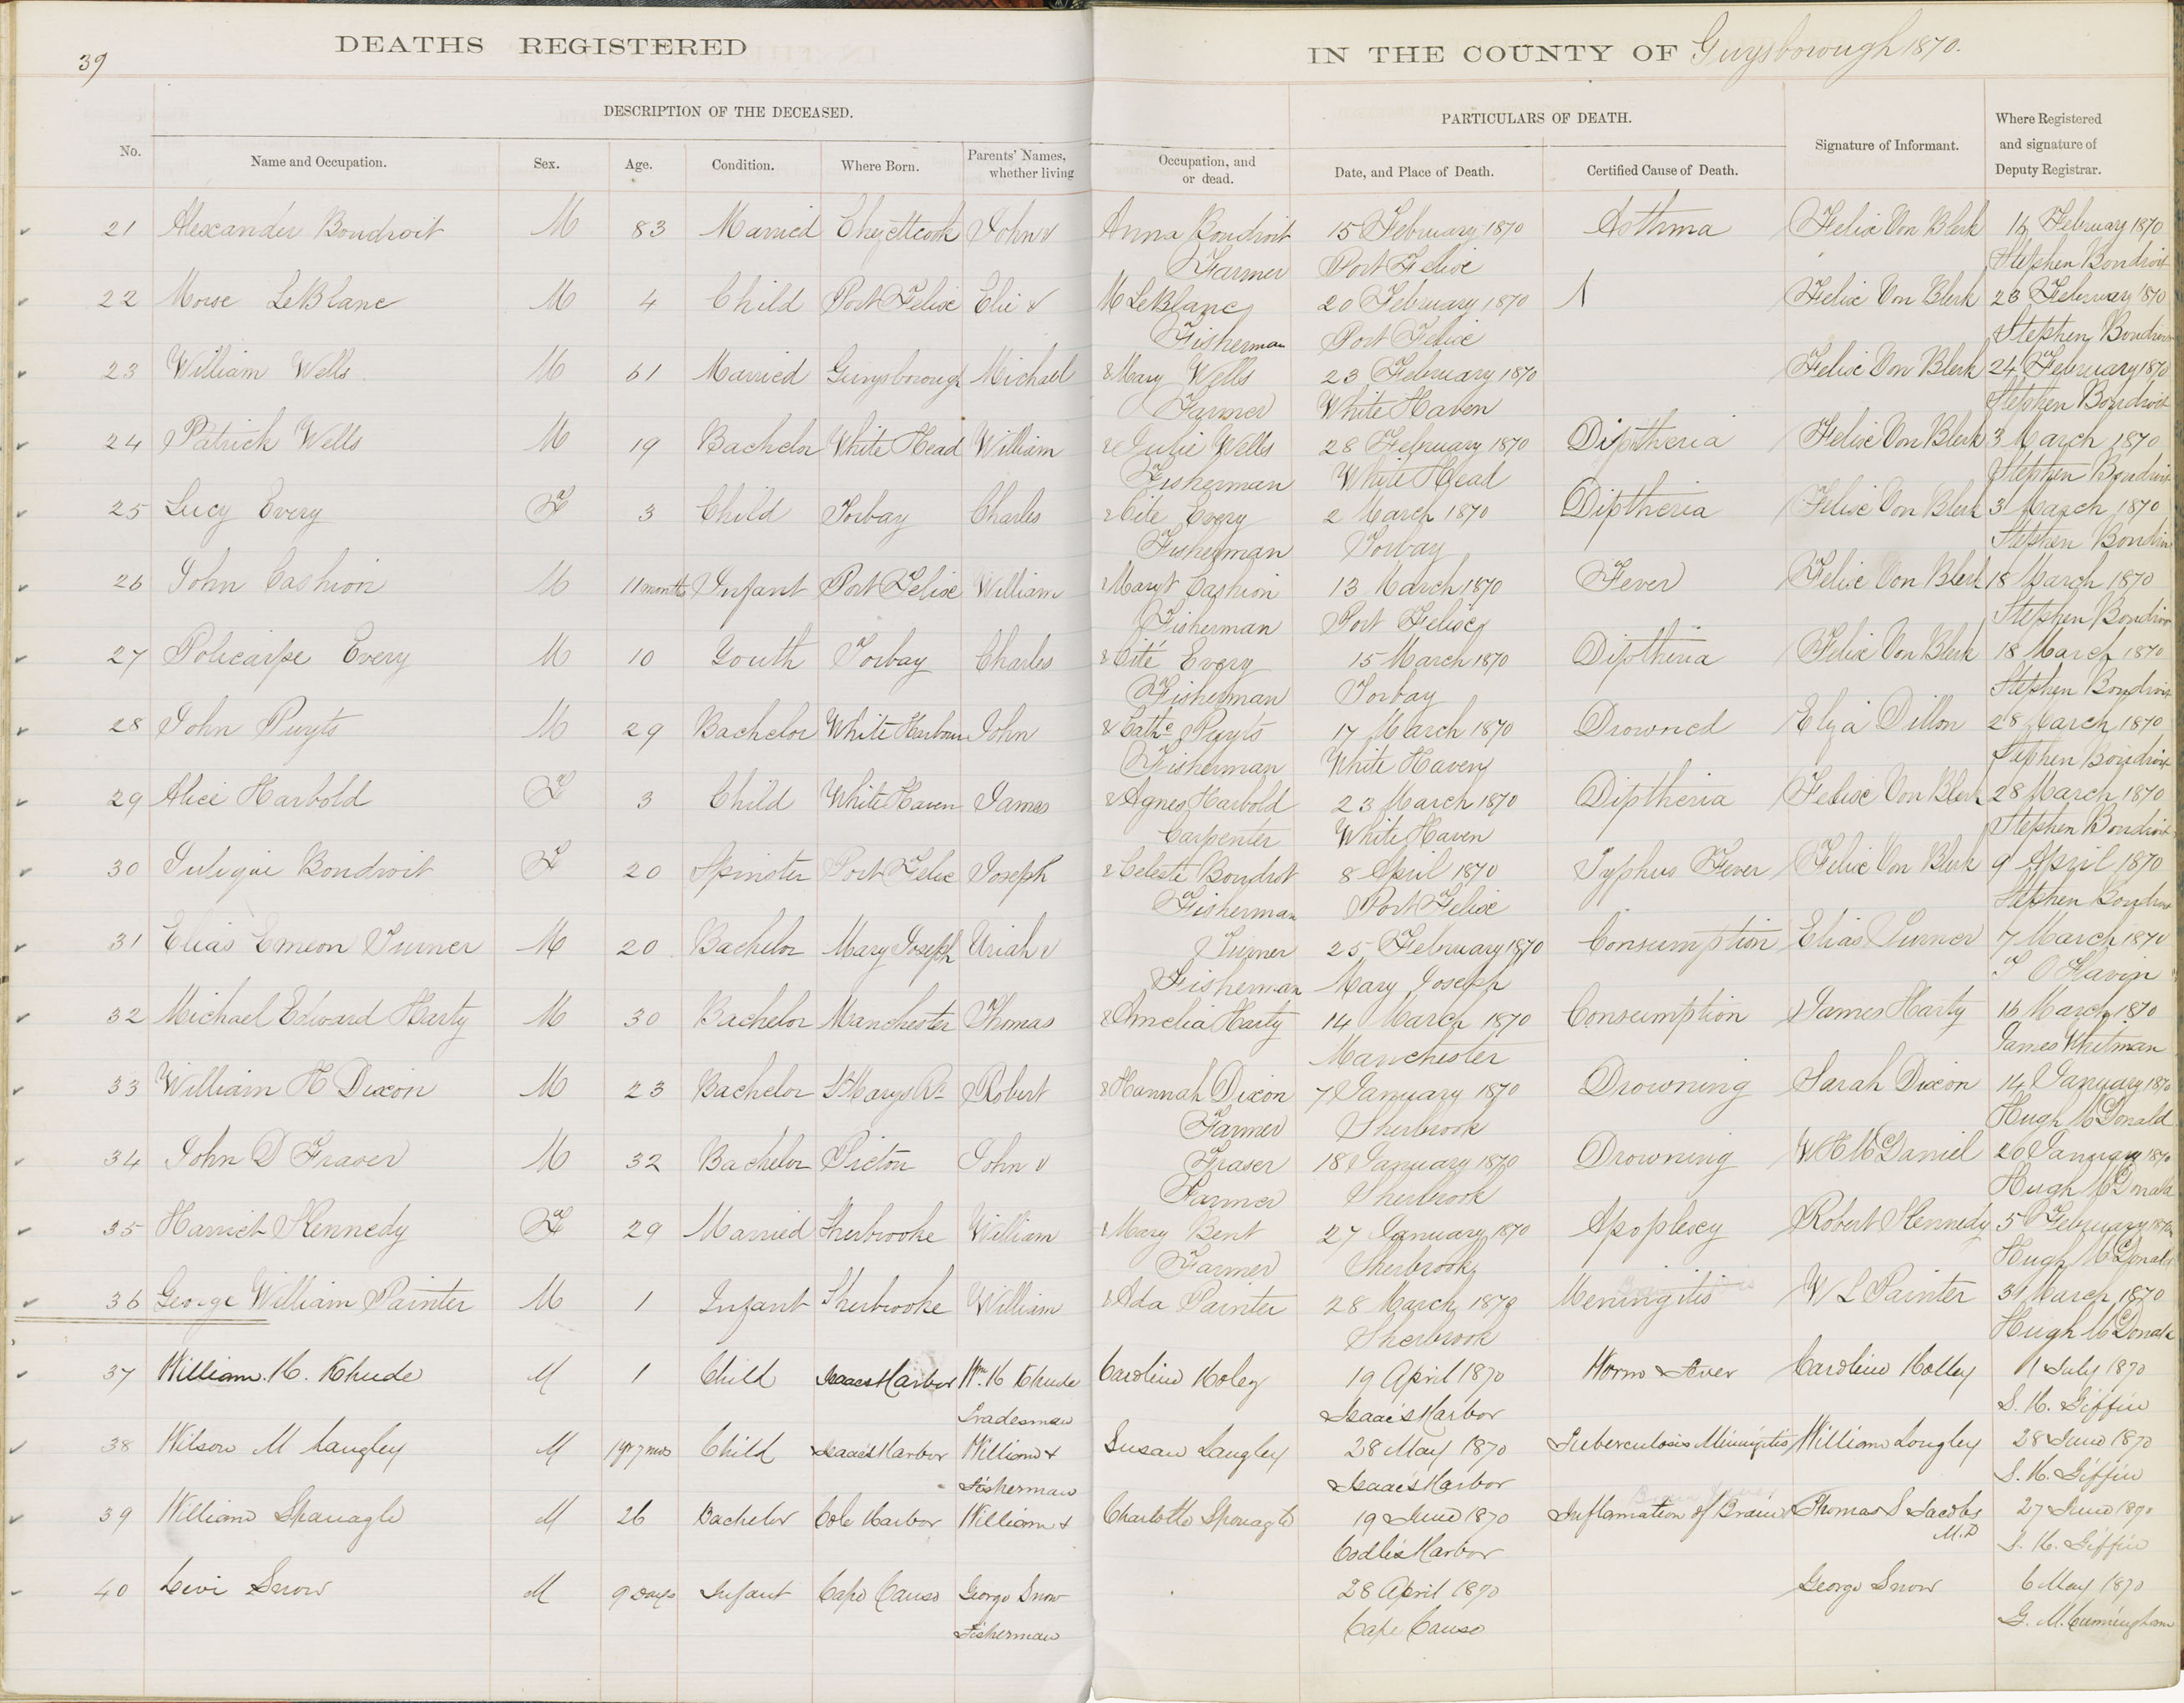 39
DEATHS REGISTERED IN THE COUNTY OF Guysborough 1870.
DESCRIPTION OF THE DECEASED. PARTICULARS OF DEATH.
No. Name and Occupation. Sex. Age. Condition. Where Born. Parents' Names, whether living Occupation, and or dead. Date, and Place of Death. Certified Cause of Death. Signature of Informant. Where Registered and signature of Deputy Registrar.
21 Alexander Boudroit M 83 Married Chezettcook John & Anna Boudroit 15 February 1870 Asthma Felix Von Blerk 16 February 1870
Farmer Port Felix Stephen Boudroit
22 Morse LeBlanc M 4 Child Port Felix Elie & M LeBlanc 20 February 1870 Felix Von Blerk 23 February 1870
Fisherman Port Felix Stephen Boudroit
23 William Wells M 61 Married Guysborough Michael & Mary Wells 23 February 1870 Felix Von Blerk 24 February 1870
Farmer White Haven Stephen Boudroit
24 Patrick Wells M 19 Bachelor White Head William & Julie Wells 28 February 1870 Diptheria Felix Von Blerk 3 March 1870
Fisherman White Head Stephen Boudroit
25 Lucy Every F 3 Child Torbay Charles & Cite Every 2 March 1870 Diptheria Felix Von Blerk 3 March 1870
Fisherman Torbay Stephen Boudroit
26 John Cashion M 11 months Infant Port Felix William & Maryt Cashion 13 March 1870 Fever Felix Von Blerk 18 March 1870
Fisherman Port Felix Stephen Boudroit
27 Policarpe Every M 10 Youth Torbay Charles & Cité Every 15 March 1870 Diptheria Felix Von Blerk 18 March 1870
Fisherman Torbay Stephen Boudroit
28 John Puyts M 29 Bachelor White Harbour John & Cathe Puyts 17 March 1870 Drowned Elza Dillon 28 March 1870
Fisherman White Haven Stephen Boudroit
29 Alice Harbold F 3 Child White Haven James & Agnes Harbold 23 March 1870 Diptheria Felix Von Blerk 28 March 1870
Carpenter White Haven Stephen Boudroit
30 Julique Boudroit F 20 Spinster Port Felix Joseph & Celeste Boudrot 8 April 1870 Typhus Fever Felix Von Blerk 9 April 1870
Fisherman Port Felix Stephen Boudroit
31 Elias Emeon Turner M 20 Bachelor Mary Joseph Uriah & Turner 25 February 1870 Consumption Elias Turner 7 March 1870
Fisherman Mary Joseph T O Flavin
32 Michael Edward Harty M 30 Bachelor Manchester Thomas & Amelia Harty 14 March 1870 Consumption James Harty 16 March 1870
Manchester James Whitman
33 William H Dixon M 23 Bachelor St Marys Rr Robert & Hannah Dixon 7 January 1870 Drowning Sarah Dixon 14 January 1870
Farmer Sherbrook Hugh McDonald
34 John D Fraser M 32 Bachelor Pictou John & Fraser 18 January 1870 Drowning W H McDaniel 20 January 1870
Farmer Sherbrook Hugh McDonald
35 Harriet Kennedy F 29 Married Sherbrooke William & Mary Bent 27 January 1870 Apoplexy Robert Kennedy 5 February 1870
Farmer Sherbrook Hugh McDonald
36 George William Painter M 1 Infant Sherbrooke William & Ada Painter 28 March 1870 Meningitis W L Painter 31 March 1870
Sherbrook Hugh McDonald
37 William. H. Khude M 1 Child Isaacs Harbor Wm. H Khude Caroline Holey 19 April 1870 Worm Fever Caroline Holley 11 July 1870
Tradesman Isaac's Harbor S. H. Giffin
38 Wilson M Langley M 1 yr 7 mos Child Isaacs Harbor William & Susan Langley 28 May 1870 Tuberculosis Miningitis William Longley 28 June 1870
Fisherman Isaac's Harbor S. H. Giffin
39 William Spanagle M 26 Bachelor Cole Harbor William & Charlotte Sponagle 19 June 1870 Inflamation of Brain Thomas S Jacobs M.D 27 June 1870
Codlis Harbor S. H. Giffin
40 Levi Snow M 9 Days Infant Cape Canso George Snow 28 April 1870 George Snow 6 May 1870
Fisherman Cape Canso G. M. Cunningham